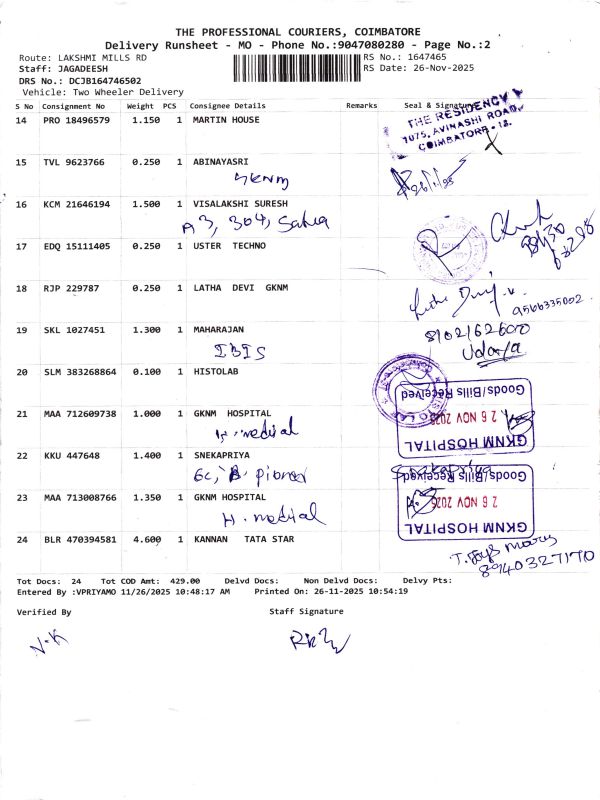 THE PROFESSIONAL COURIERS, COIMBATORE
Delivery Runsheet - MO - Phone No.:9047080280 - Page No.:2
Route: LAKSHMI MILLS RD
RS No.: 1647465
Staff: JAGADEESH
RS Date: 26-Nov-2025
DRS No.: DCJB164746502
Vehicle: Two Wheeler Delivery
S No Consignment No Weight PCS Consignee Details Remarks Seal & Signature
14 PRO 18496579 1.150 1 MARTIN HOUSE
THE RESIDENCY
1075, AVINASHI ROAD,
COIMBATORE - 18.
15 TVL 9623766 0.250 1 ABINAYASRI
GKNM
16 KCM 21646194 1.500 1 VISALAKSHI SURESH
A3, 304,
17 EDQ 15111405 0.250 1 USTER TECHNO
18 RJP 229787 0.250 1 LATHA DEVI GKNM
9566335002
19 SKL 1027451 1.300 1 MAHARAJAN
IBIS
8102162600
Udaya
20 SLM 383268864 0.100 1 HISTOLAB
21 MAA 712609738 1.000 1 GKNM HOSPITAL
H. medical
GKNM HOSPITAL
26 NOV 2025
Goods/Bills Received
22 KKU 447648 1.400 1 SNEKAPRIYA
23 MAA 713008766 1.350 1 GKNM HOSPITAL
H. medical
GKNM HOSPITAL
26 NOV 2025
Goods/Bills Received
24 BLR 470394581 4.600 1 KANNAN TATA STAR
8940327170
Tot Docs: 24 Tot COD Amt: 429.00 Delvd Docs: Non Delvd Docs: Delvy Pts:
Entered By :VPRIYAMO 11/26/2025 10:48:17 AM Printed On: 26-11-2025 10:54:19
Verified By Staff Signature